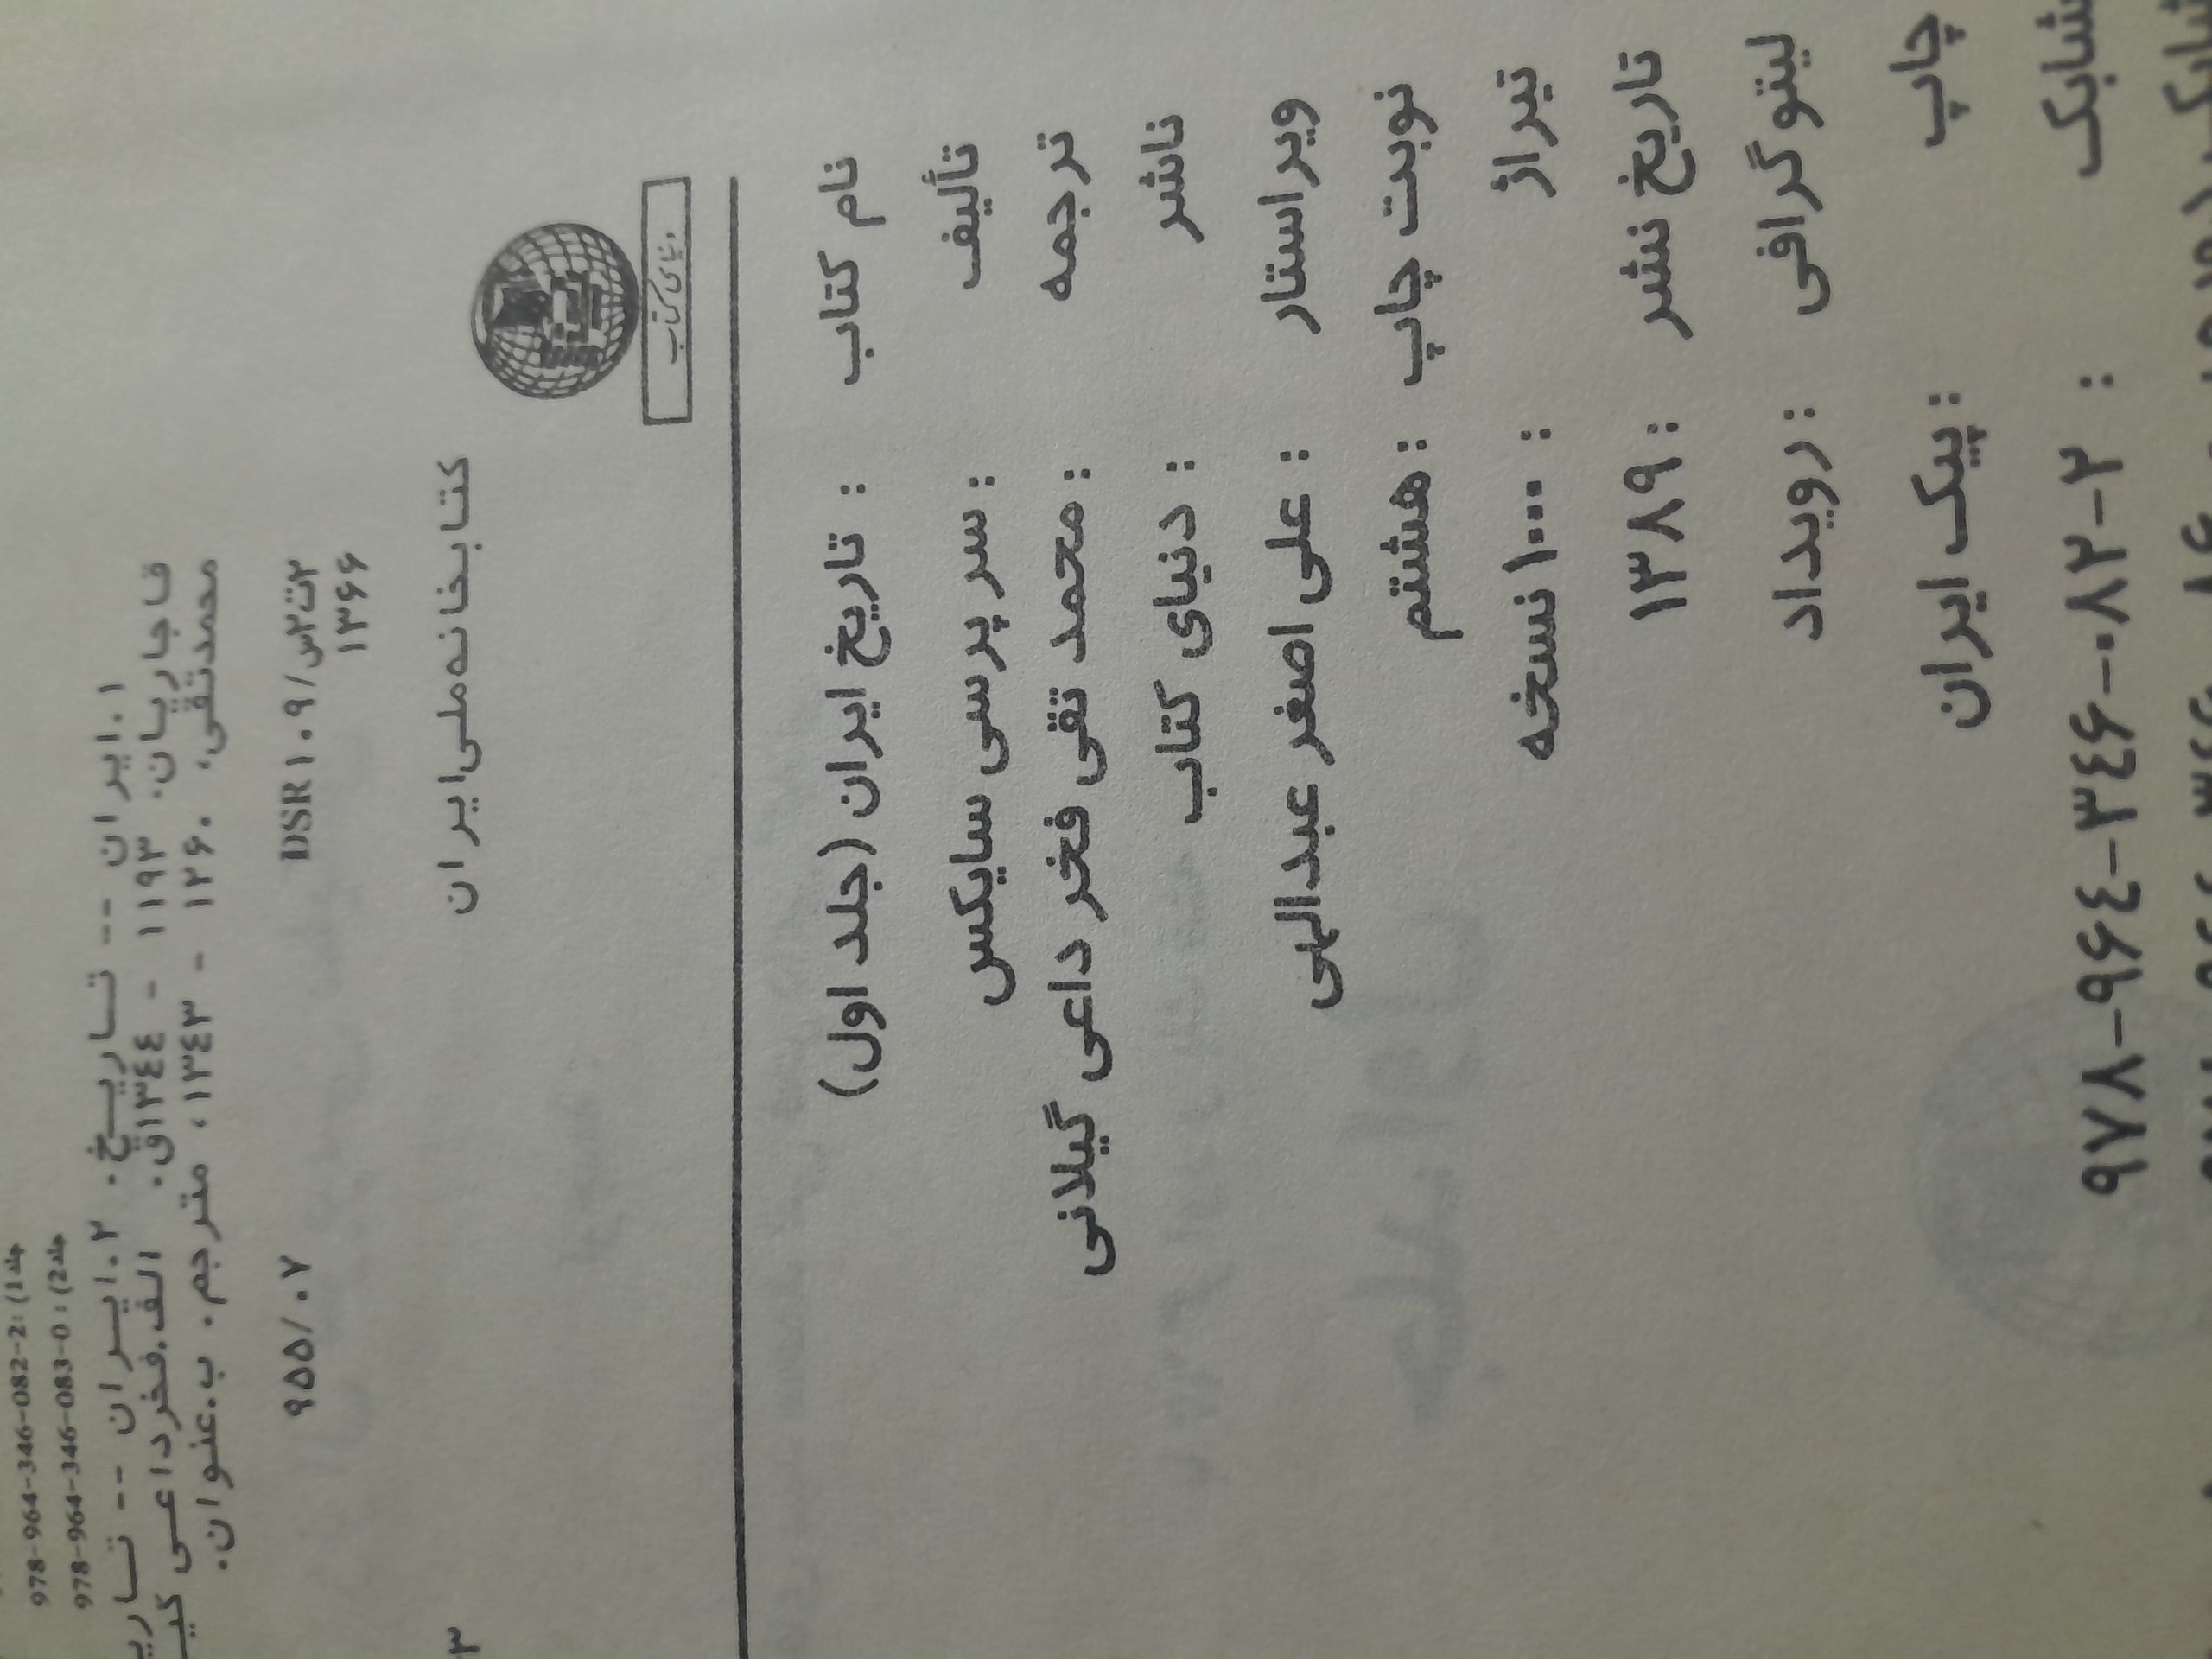 978-964-346-082-2: (جلد1
978-964-346-083-0: (جلد2
۱.ایران -- تاریخ. ۲.ایران -- تاری
قاجاریان. ۱۱۹۳ - ۱۳٤٤ق. الف.فخرداعی گی
محمدتقی، ۱۲۶۰ - ۱۳٤۳، مترجم. ب.عنوان.
۲ت۲س/DSR۱۰۹ ۹۵۵/۰۷
۱۳۶۶
کتابخانه‌ملی‌ایران ۳
دنیای کتاب
نام کتاب : تاریخ ایران (جلد اول)
تألیف : سر پرسی سایکس
ترجمه : محمد تقی فخر داعی گیلانی
ناشر : دنیای کتاب
ویراستار : علی اصغر عبدالهی
نوبت چاپ : هشتم
تیراژ : ۱۰۰۰ نسخه
تاریخ نشر : ۱۳۸۹
لیتوگرافی : رویداد
چاپ : پیک ایران
شابک : ۹۷۸-۹۶٤-۳٤۶-۰۸۲-۲